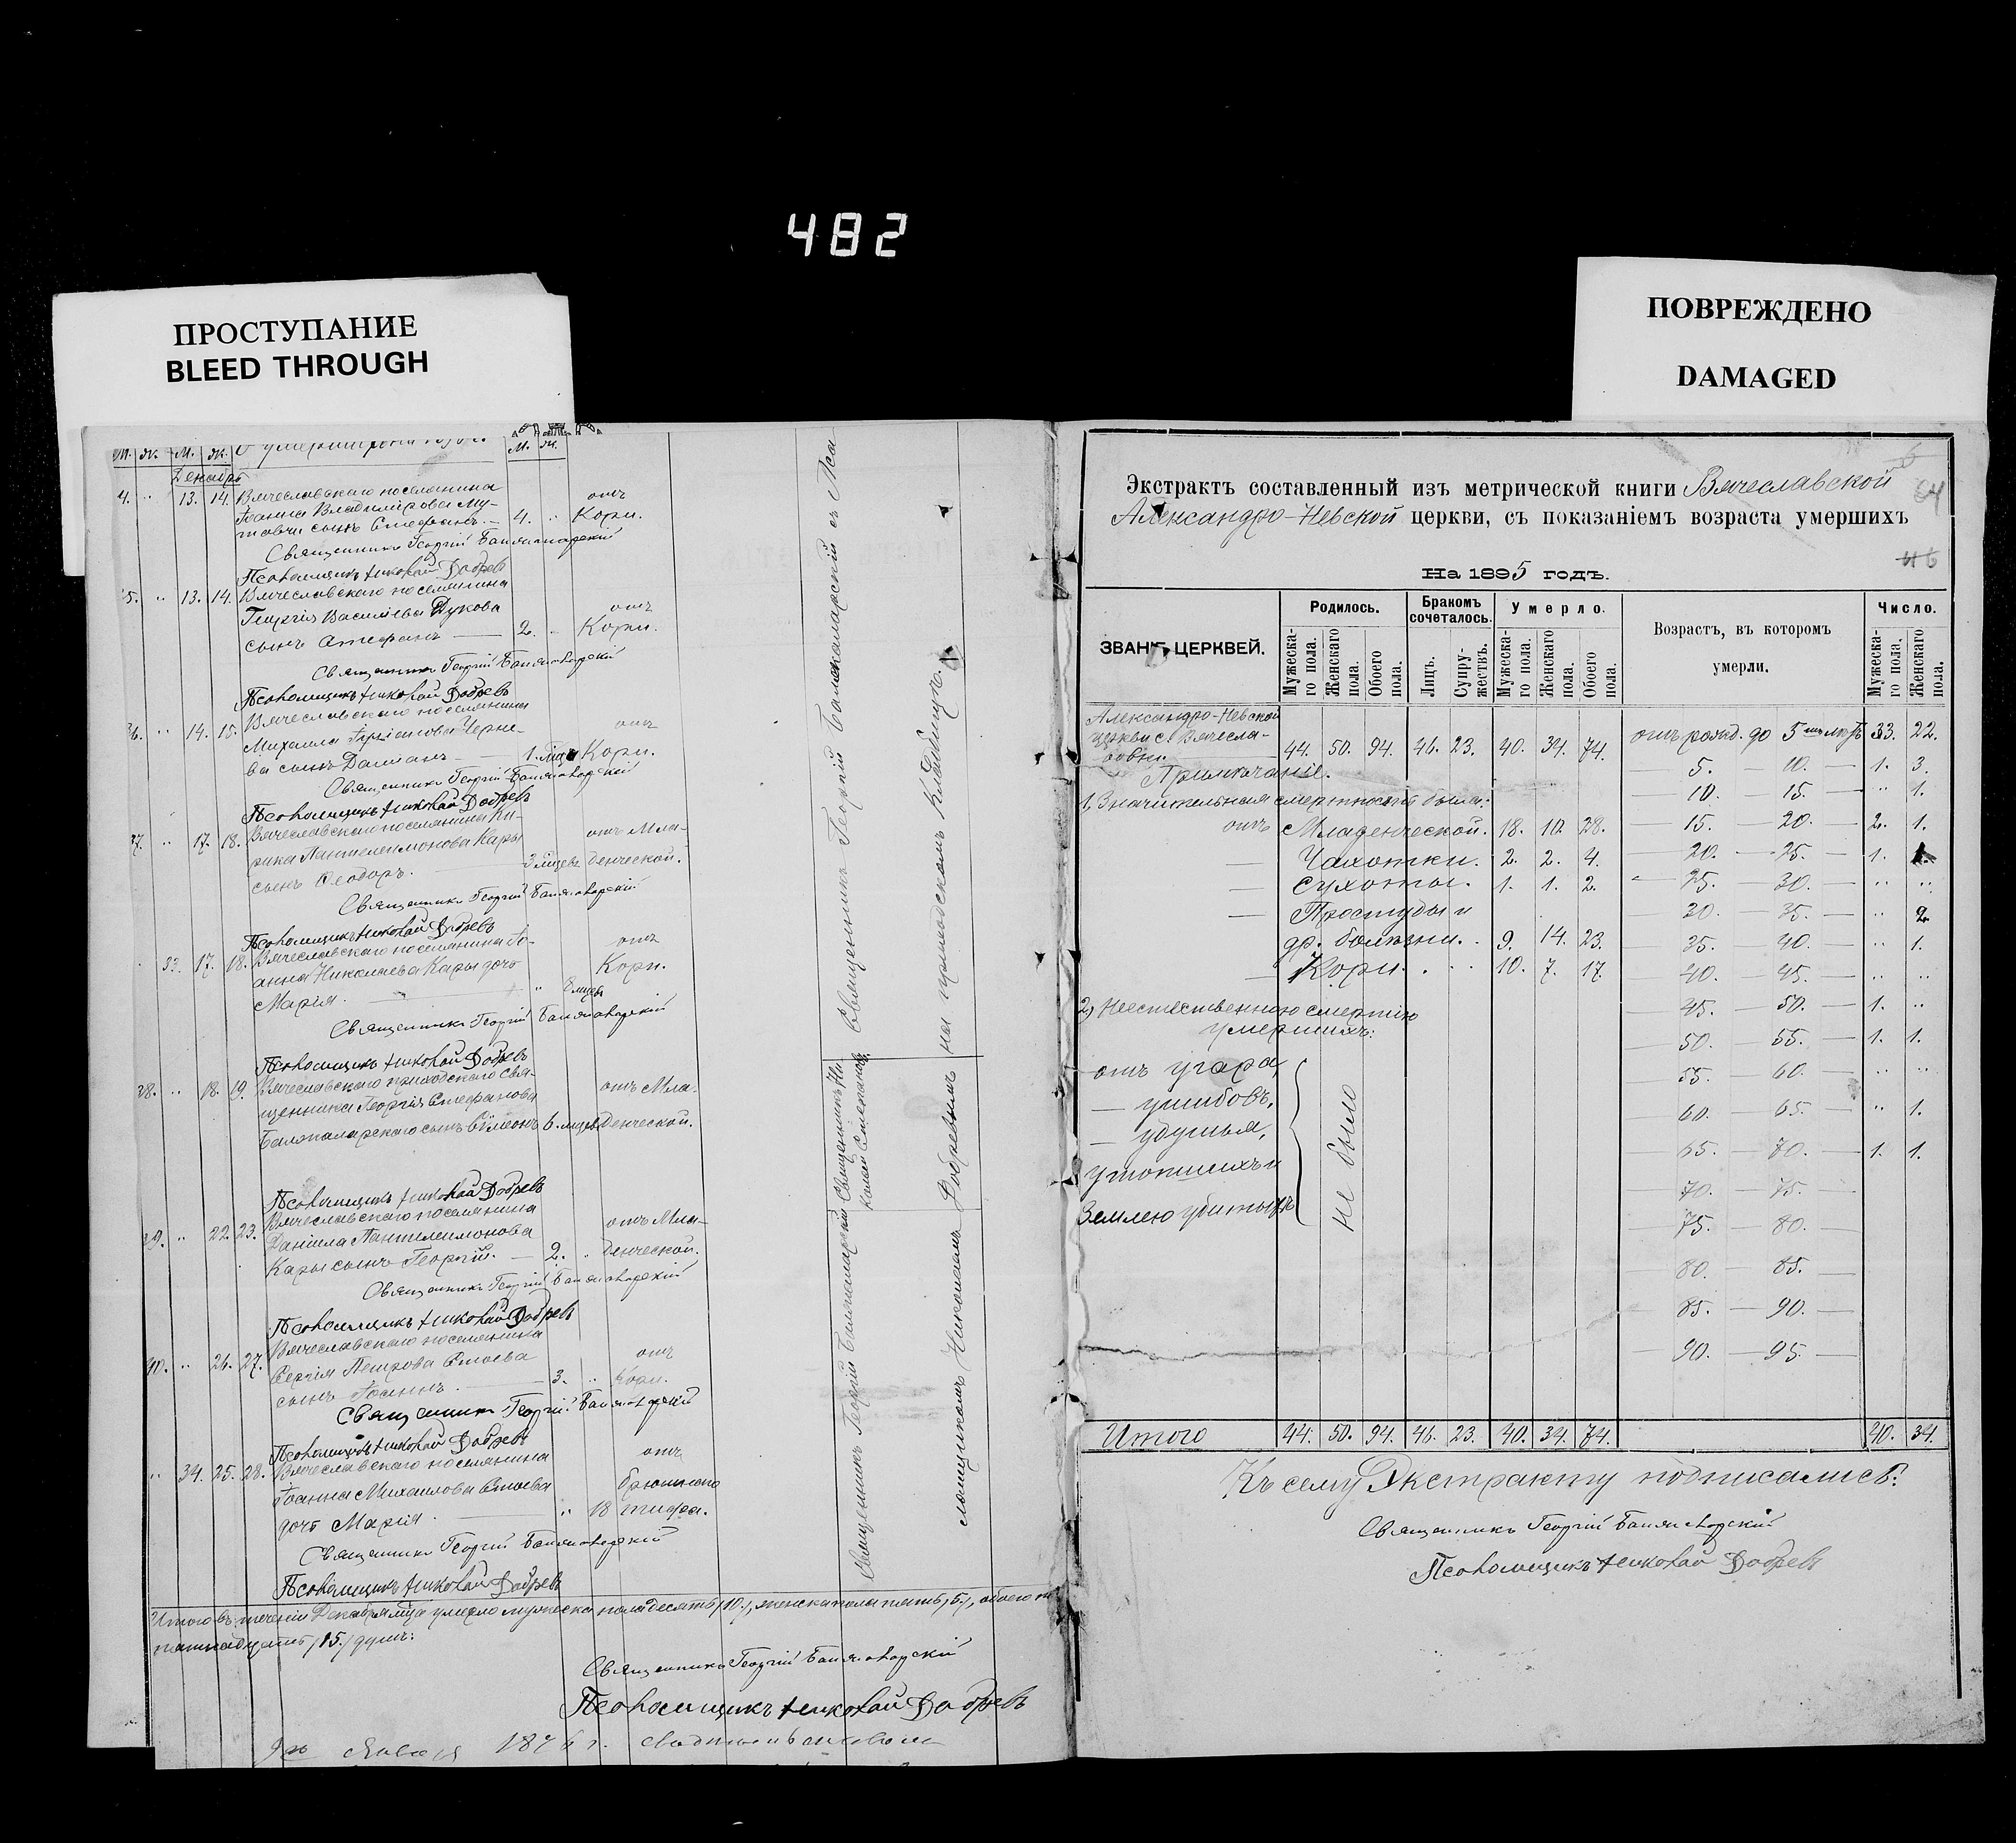 482
ПРОСТУПАНИЕ
BLEED THROUGH
ПОВРЕЖДЕНО
DAMAGED
М. Ж. М. Ж. О умершихъ
М. Ж.
Декабрь
4. " 13. 14. Вячеславскаго поселянина
Іоанна Владимірова Му-
тавчи сынъ Стефанъ. — 4. " отъ Кори.
Священникъ Георгій Баялпаларскій
Псаломщикъ Николай Добревъ
35. " 13. 14. Вячеславскаго поселянина
Георгія Василіева Дукова
сынъ Стефанъ — 2. " отъ Кори.
Священникъ Георгій Баялпаларскій
Псаломщикъ Николай Добревъ
36. " 14. 15. Вячеславскаго поселянина
Михаила Черне-
ва сынъ Даміанъ — 1. мца отъ Кори.
Священникъ Георгій Баялпаларскій
Псаломщикъ Николай Добревъ
37. " 17. 18. Вячеславскаго поселянина Ки-
рика Пантелеимонова Кары
сынъ Ѳеодоръ. — 3 мцевъ отъ Мла-
денческой.
Священникъ Георгій Баялпаларскій
Псаломщикъ Николай Добревъ
33. 17. 18. Вячеславскаго поселянина Іо-
анна Николаева Кары дочь
Марія. — " 8 мцевъ отъ Кори.
Священникъ Георгій Баялпаларскій
Псаломщикъ Николай Добревъ
38. " 18. 19. Вячеславскаго приходскаго свя-
щенника Георгія Стефанова
Баялпаларскаго сынъ Сѵмеонъ 6. мцевъ отъ Мла-
денческой.
Псаломщикъ Николай Добревъ
39. " 22. 23. Вячеславскаго поселянина
Даніила Пантелеимонова
Кары сынъ Георгій. — 2. " отъ Мла-
денческой.
Священникъ Георгій Баялпаларскій
Псаломщикъ Николай Добревъ
40. " 26. 27. Вячеславскаго поселянина
Сергія Петрова Стоева
сынъ Іоаннъ. — 3. " отъ Кори.
Священникъ Георгій Баялпаларскій
Псаломщикъ Николай Добревъ
" 34. 25. 28. Вячеславскаго поселянина
Іоанна Михаилова Стоева
дочь Марія. — " 18 отъ брюшнаго
тифа.
Священникъ Георгій Баялпаларскій
Псаломщикъ Николай Добревъ
Священникъ Георгій Баялпаларскій съ Пса-
ломщикомъ Николаемъ Добревымъ
на приходскомъ кладбищѣ.
Итого въ теченіи Декабря мца умерло мужеска пола десять /10./, женска пола пять /5./, обоего п.
пятнадцать /15./ душъ:
Священникъ Георгій Баялпаларскій
Псаломщикъ Николай Добревъ
Января 1896 г.
64
Экстрактъ составленный изъ метрической книги Вячеславской
Александро-Невской церкви, съ показаніемъ возраста умершихъ
46
На 1895 годъ.
ЗВАНІЕ ЦЕРКВЕЙ.
Родилось.
Бракомъ сочеталось.
Умерло.
Возрастъ, въ которомъ умерли.
Число.
Мужескаго пола. Женскаго пола. Обоего пола. Лицъ. Супружествъ. Мужескаго пола. Женскаго пола. Обоего пола. Мужескаго пола. Женскаго пола.
Александро-Невской
церкви с. Вячесла-
вовки. 44. 50. 94. 46. 23. 40. 34. 74. отъ рожд. до 5ти лѣтъ 33. 22.
Примѣчаніе. — 5. — 10. — 1. 3.
1, Значительная смертность была: — 10. — 15. — " 1.
отъ Младенческой. 18. 10. 28. — 15. — 20. — 2. 1.
— Чахотки. 2. 2. 4. — 20. — 25. — 1. 1.
— Сухоты. 1. 1. 2. — 25. — 30. — " "
— Простуды и — 30. — 35. — " 2.
др. болѣзни. 9. 14. 23. — 35. — 40. — " 1.
— Кори. 10. 7. 17. — 40. — 45. — " "
2) Неестественною смертію — 45. — 50. — 1. "
умершихъ: — 50. — 55. — 1. 1.
отъ угара, — 55. — 60. — " "
— ушибовъ, — 60. — 65. — " 1.
— удушья, — 65. — 70. — 1. 1.
утопшихъ и — 70. — 75. —
Землею убитыхъ — 75. — 80. —
не было
— 80. — 85. —
— 85. — 90. —
— 90. — 95. —
Итого 44. 50. 94. 46. 23. 40. 34. 74. 40. 34.
Къ сему Экстракту подписались:
Священникъ Георгій Баялпаларскій
Псаломщикъ Николай Добревъ